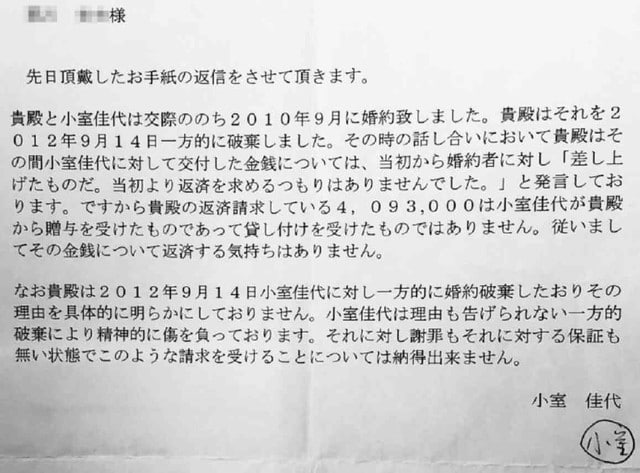 様
先日頂戴したお手紙の返信をさせて頂きます。
貴殿と小室佳代は交際ののち２０１０年９月に婚約致しました。貴殿はそれを２
０１２年９月１４日一方的に破棄しました。その時の話し合いにおいて貴殿はそ
の間小室佳代に対して交付した金銭については、当初から婚約者に対し「差し上
げたものだ。当初より返済を求めるつもりはありませんでした。」と発言してお
ります。ですから貴殿の返済請求している４，０９３,０００は小室佳代が貴殿
から贈与を受けたものであって貸し付けを受けたものではありません。従いまし
てその金銭について返済する気持ちはありません。
なお貴殿は２０１２年９月１４日小室佳代に対し一方的に婚約破棄したおりその
理由を具体的に明らかにしておりません。小室佳代は理由も告げられない一方的
破棄により精神的に傷を負っております。それに対し謝罪もそれに対する保証も
無い状態でこのような請求を受けることについては納得出来ません。
小室　佳代
小室